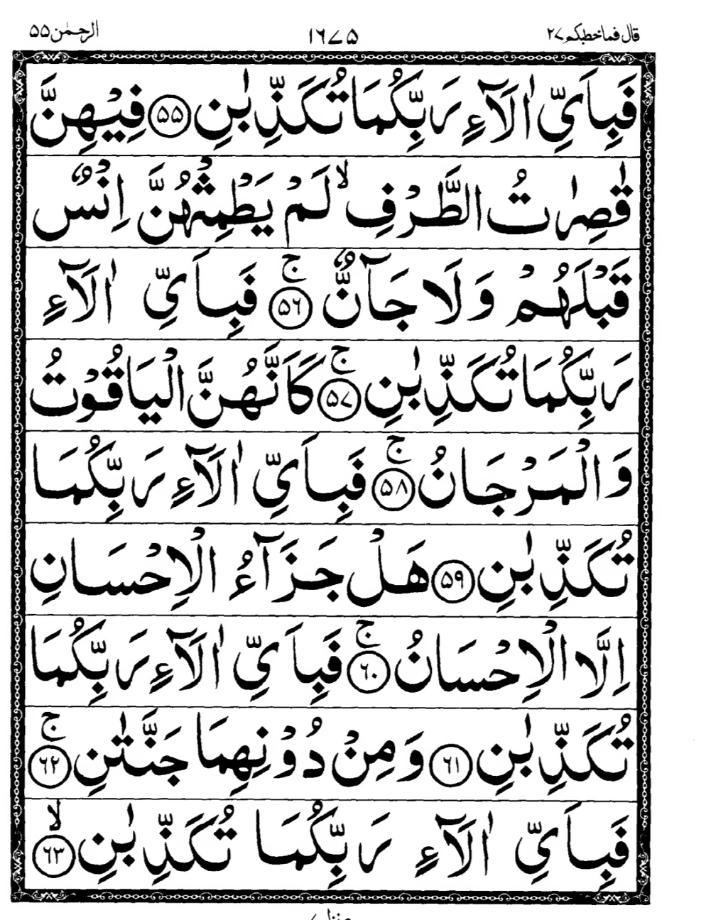 قال فما خطبكم ۲۷ ۱۶۷۵ الرحمٰن ۵۵
فَبِاَىِّ اٰلَآءِ رَبِّكُمَا تُكَذِّبٰنِ ۵۵ فِيْهِنَّ
قٰصِرٰتُ الطَّرْفِ ۙ لَمْ يَطْمِثْهُنَّ اِنْسٌ
قَبْلَهُمْ وَلَا جَآنٌّ ۚ ۵۶ فَبِاَىِّ اٰلَآءِ
رَبِّكُمَا تُكَذِّبٰنِ ۚ ۵۷ كَاَنَّهُنَّ الْيَاقُوْتُ
وَالْمَرْجَانُ ۚ ۵۸ فَبِاَىِّ اٰلَآءِ رَبِّكُمَا
تُكَذِّبٰنِ ۵۹ هَلْ جَزَآءُ الْاِحْسَانِ
اِلَّا الْاِحْسَانُ ۚ ۶۰ فَبِاَىِّ اٰلَآءِ رَبِّكُمَا
تُكَذِّبٰنِ ۶۱ وَمِنْ دُوْنِهِمَا جَنَّتٰنِ ۚ ۶۲
فَبِاَىِّ اٰلَآءِ رَبِّكُمَا تُكَذِّبٰنِ ۙ ۶۳